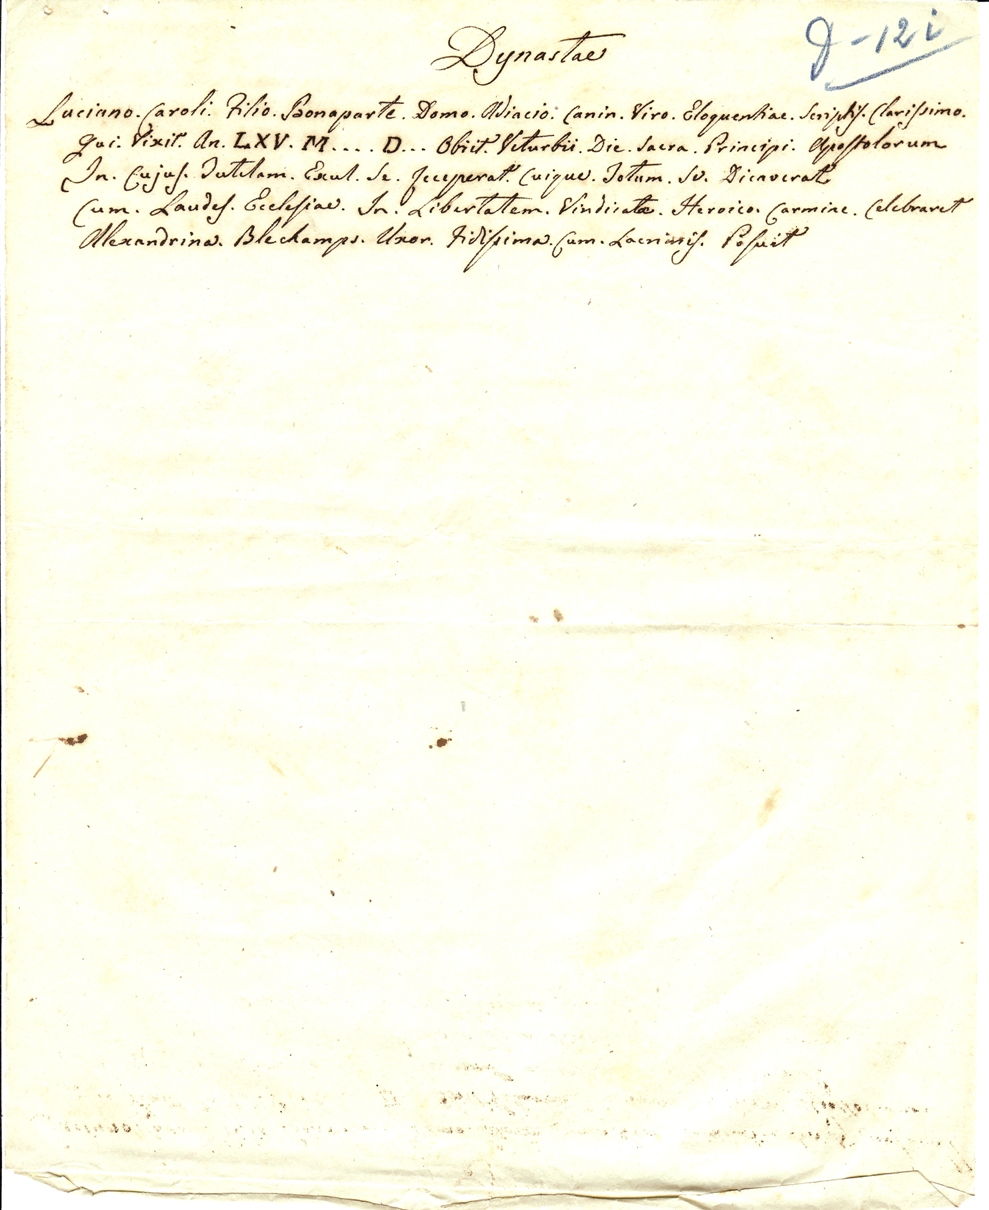 D-12i
Dynastae
Luciano. Caroli. Filio. Bonaparte. Domo. Adiacio. Canin. Viro. Eloquentiae. Scriptis. Clarissimo.
Qui. Vixit. An. LXV. M.... D... Obiit. Viturbii. Die. Sacra. Principi. Apostolorum
In. Cujus. Tutelam. Exul. Se. Receperat. Cuique. Totum. Se. Dicaverat
Cum. Laudes. Ecclesiae. In. Libertatem. Vindicatae. Heroico. Carmine. Celebraret
Alexandrina. Blechamps. Uxor. Fidissima. Cum. Lacrimis. Posuit